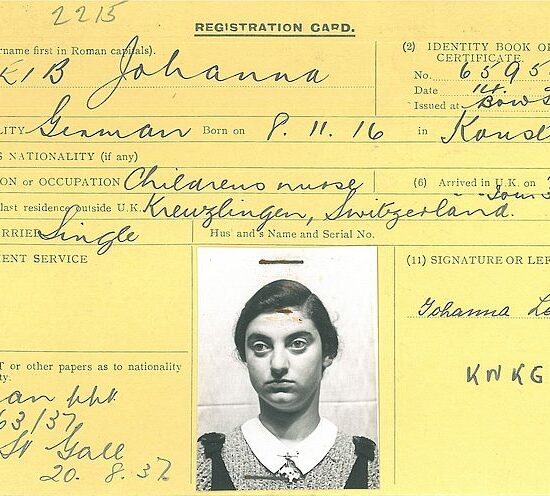 2215
REGISTRATION CARD.
rname first in Roman capitals).
Johanna
(2) IDENTITY BOOK OR
CERTIFICATE.
No. 6595
Date 14.
Issued at Bow S
LITY German Born on 8.11.16 in
S NATIONALITY (if any)
ION or OCCUPATION Childrens nurse (6) Arrived in U.K. on
last residence outside U.K. Kreuzlingen, Switzerland.
RRIED Single Husband's Name and Serial No.
MENT SERVICE
(11) SIGNATURE OR LEF
Johanna
KNKG
T or other papers as to nationality
ty.
63/37
St Gall
20. 8. 37